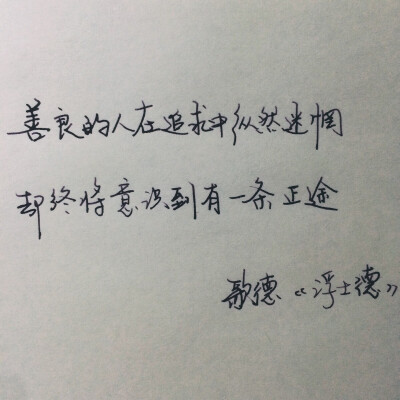 善良的人在追求中纵然迷惘
却终将意识到有一条正途
歌德《浮士德》